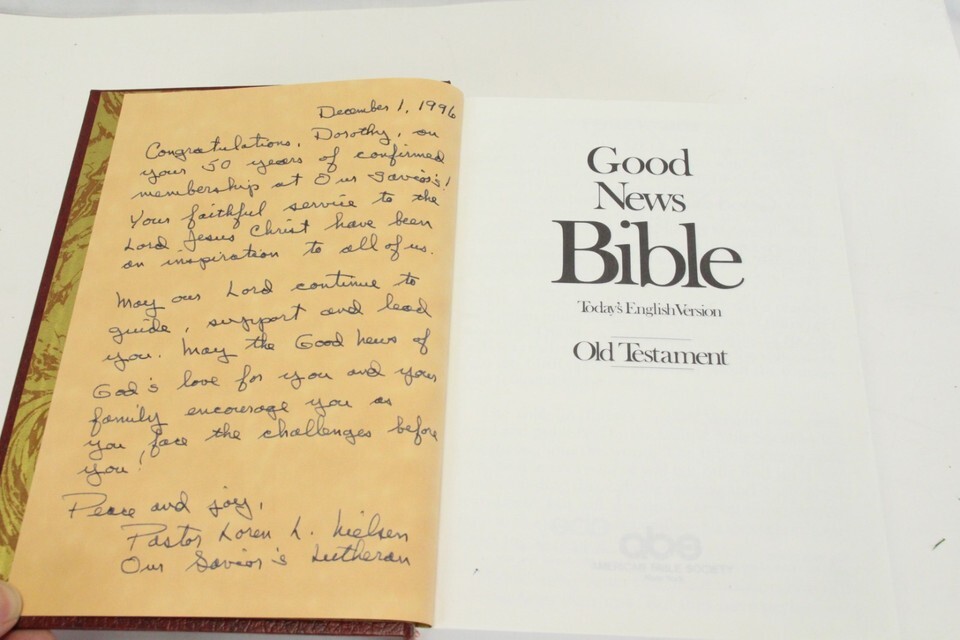 December 1, 1996
Congratulations, Dorothy, on
your 50 years of confirmed
membership at Our Savior's!
Your faithful service to the
Lord Jesus Christ have been
an inspiration to all of us.
May our Lord continue to
guide, support and lead
you. May the Good News of
God's love for you and your
family encourage you as
you face the challenges before
you!
Peace and joy,
Pastor Loren L. Nielsen
Our Savior's Lutheran
Good
News
Bible
Today's English Version
Old Testament